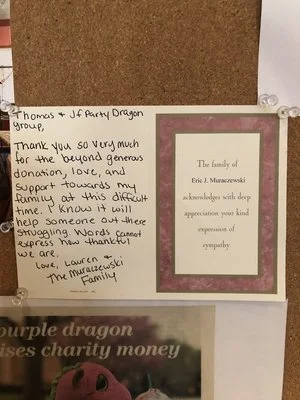 Thomas & Jf Party Dragon
group,
Thank you so very much
for the beyond generous
donation, love, and
support towards my
family at this difficult
time. I know it will
help someone out there
struggling. Words cannot
express how thankful
we are.
Love, Lauren &
The Muraczewski
Family
The family of
Eric J. Muraczewski
acknowledges with deep
appreciation your kind
expression of
sympathy
purple dragon
ises charity money